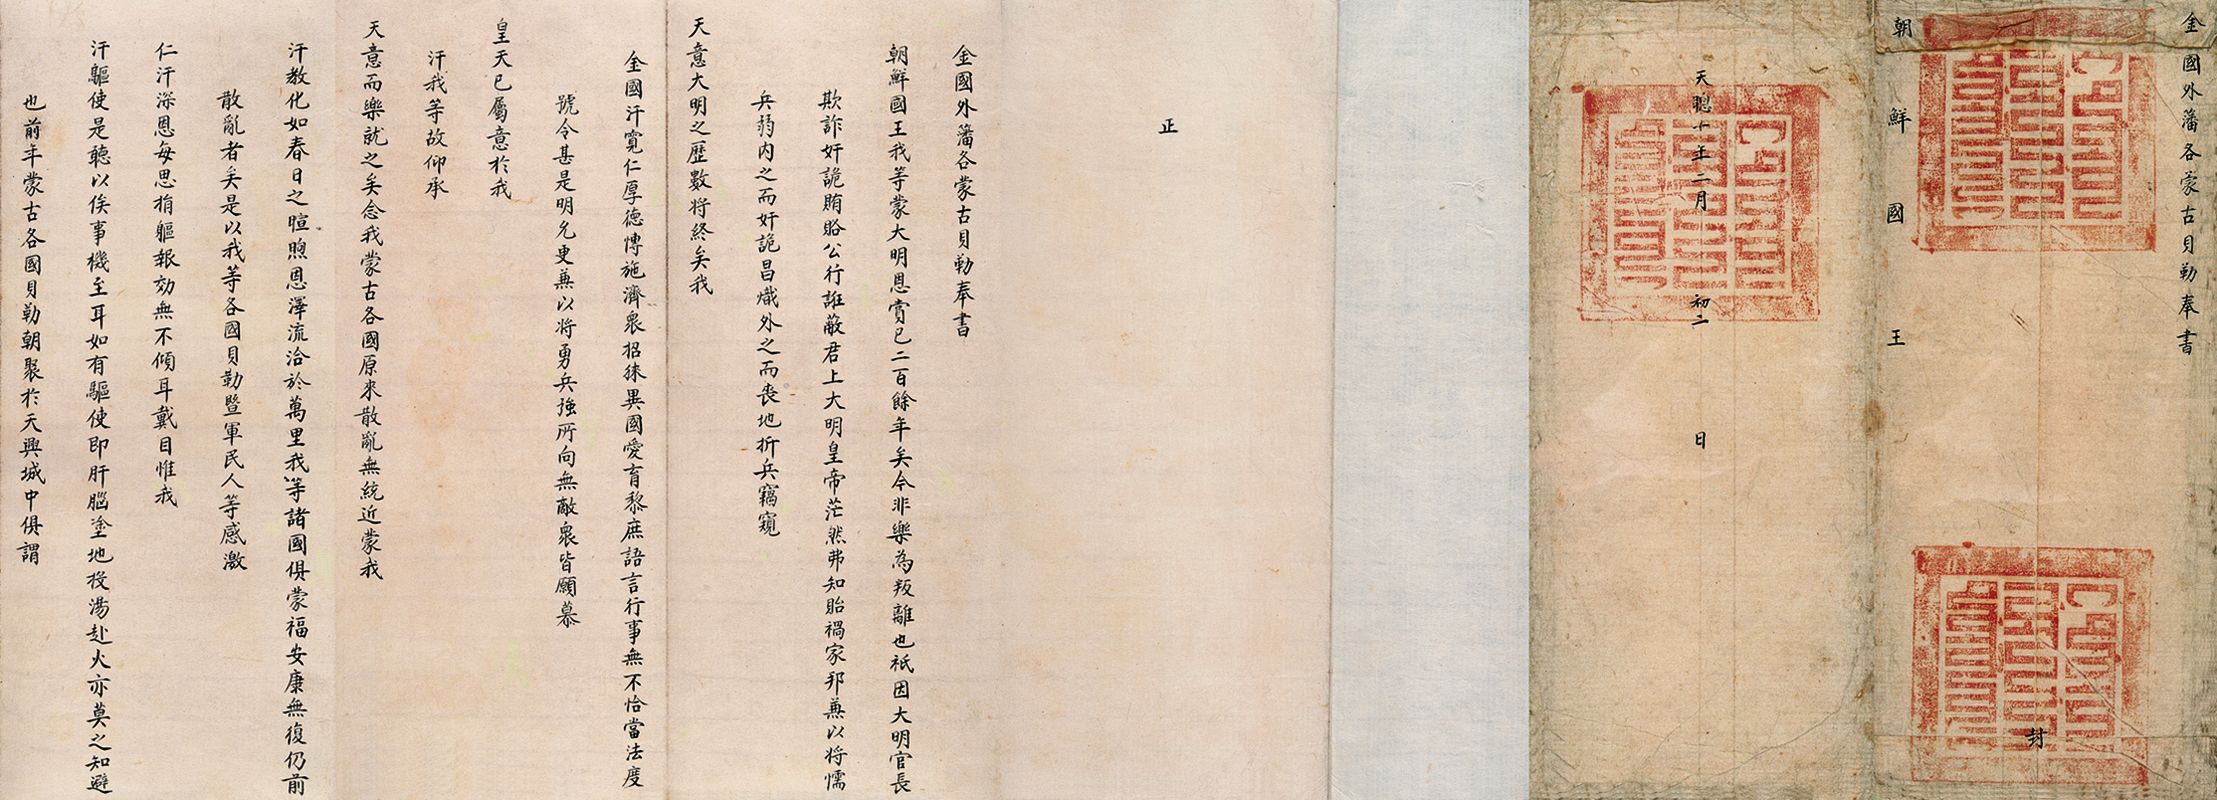 金國外藩各蒙古貝勒奉書
朝鮮國王
封
天聰十年二月初二日
正
金國外藩各蒙古貝勒奉書
朝鮮國王我等蒙大明恩賞已二百餘年矣今非樂為叛離也祇因大明官長
欺詐奸詭賄賂公行誑蔽君上大明皇帝茫然弗知貽禍家邦兼以將懦
兵弱內之而奸詭昌熾外之而喪地折兵竊窺
天意大明之歷數將終矣我
金國汗寬仁厚德愽施濟衆招徠異國愛育黎庶語言行事無不恰當法度
號令甚是明允更兼以將勇兵強所向無敵衆皆願慕
皇天已屬意於我
汗我等故仰承
天意而樂就之矣念我蒙古各國原來散亂無統近蒙我
汗教化如春日之暄煦恩澤流洽於萬里我等諸國俱蒙福安康無復仍前
散亂者矣是以我等各國貝勒暨軍民人等感激
仁汗深恩每思捐軀報効無不傾耳戴目惟我
汗驅使是聽以俟事機至耳如有驅使即肝腦塗地投湯赴火亦莫之知避
也前年蒙古各國貝勒朝聚於天興城中俱謂